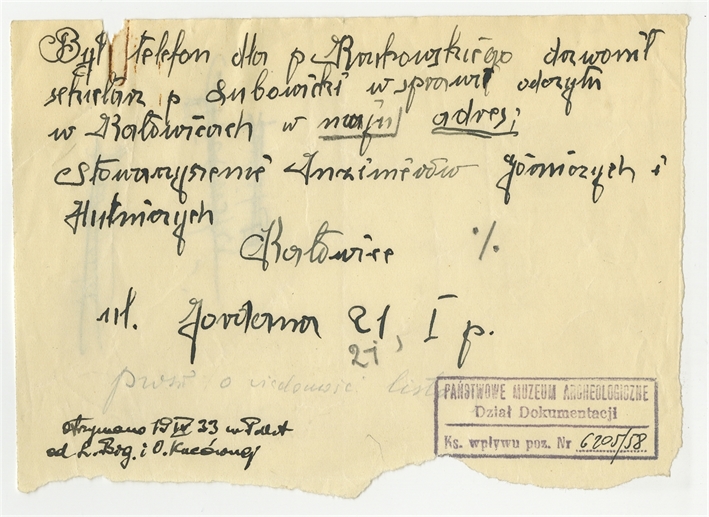 Był telefon dla p Rakowskiego dzwonił
sekretarz p Lubowicki w sprawie odczytu
w Katowicach w maju adres;
Stowarzyszenie Inżinierów Górniczych i
Hutniczych
Katowice %
ul. Jordana 21, I p.
21
o wiadomość
otrzymano 19 IV 33 w
od L. Bog. i O.
PAŃSTWOWE MUZEUM ARCHEOLOGICZNE
Dział Dokumentacji
Ks. wpływu poz. Nr 6205/58